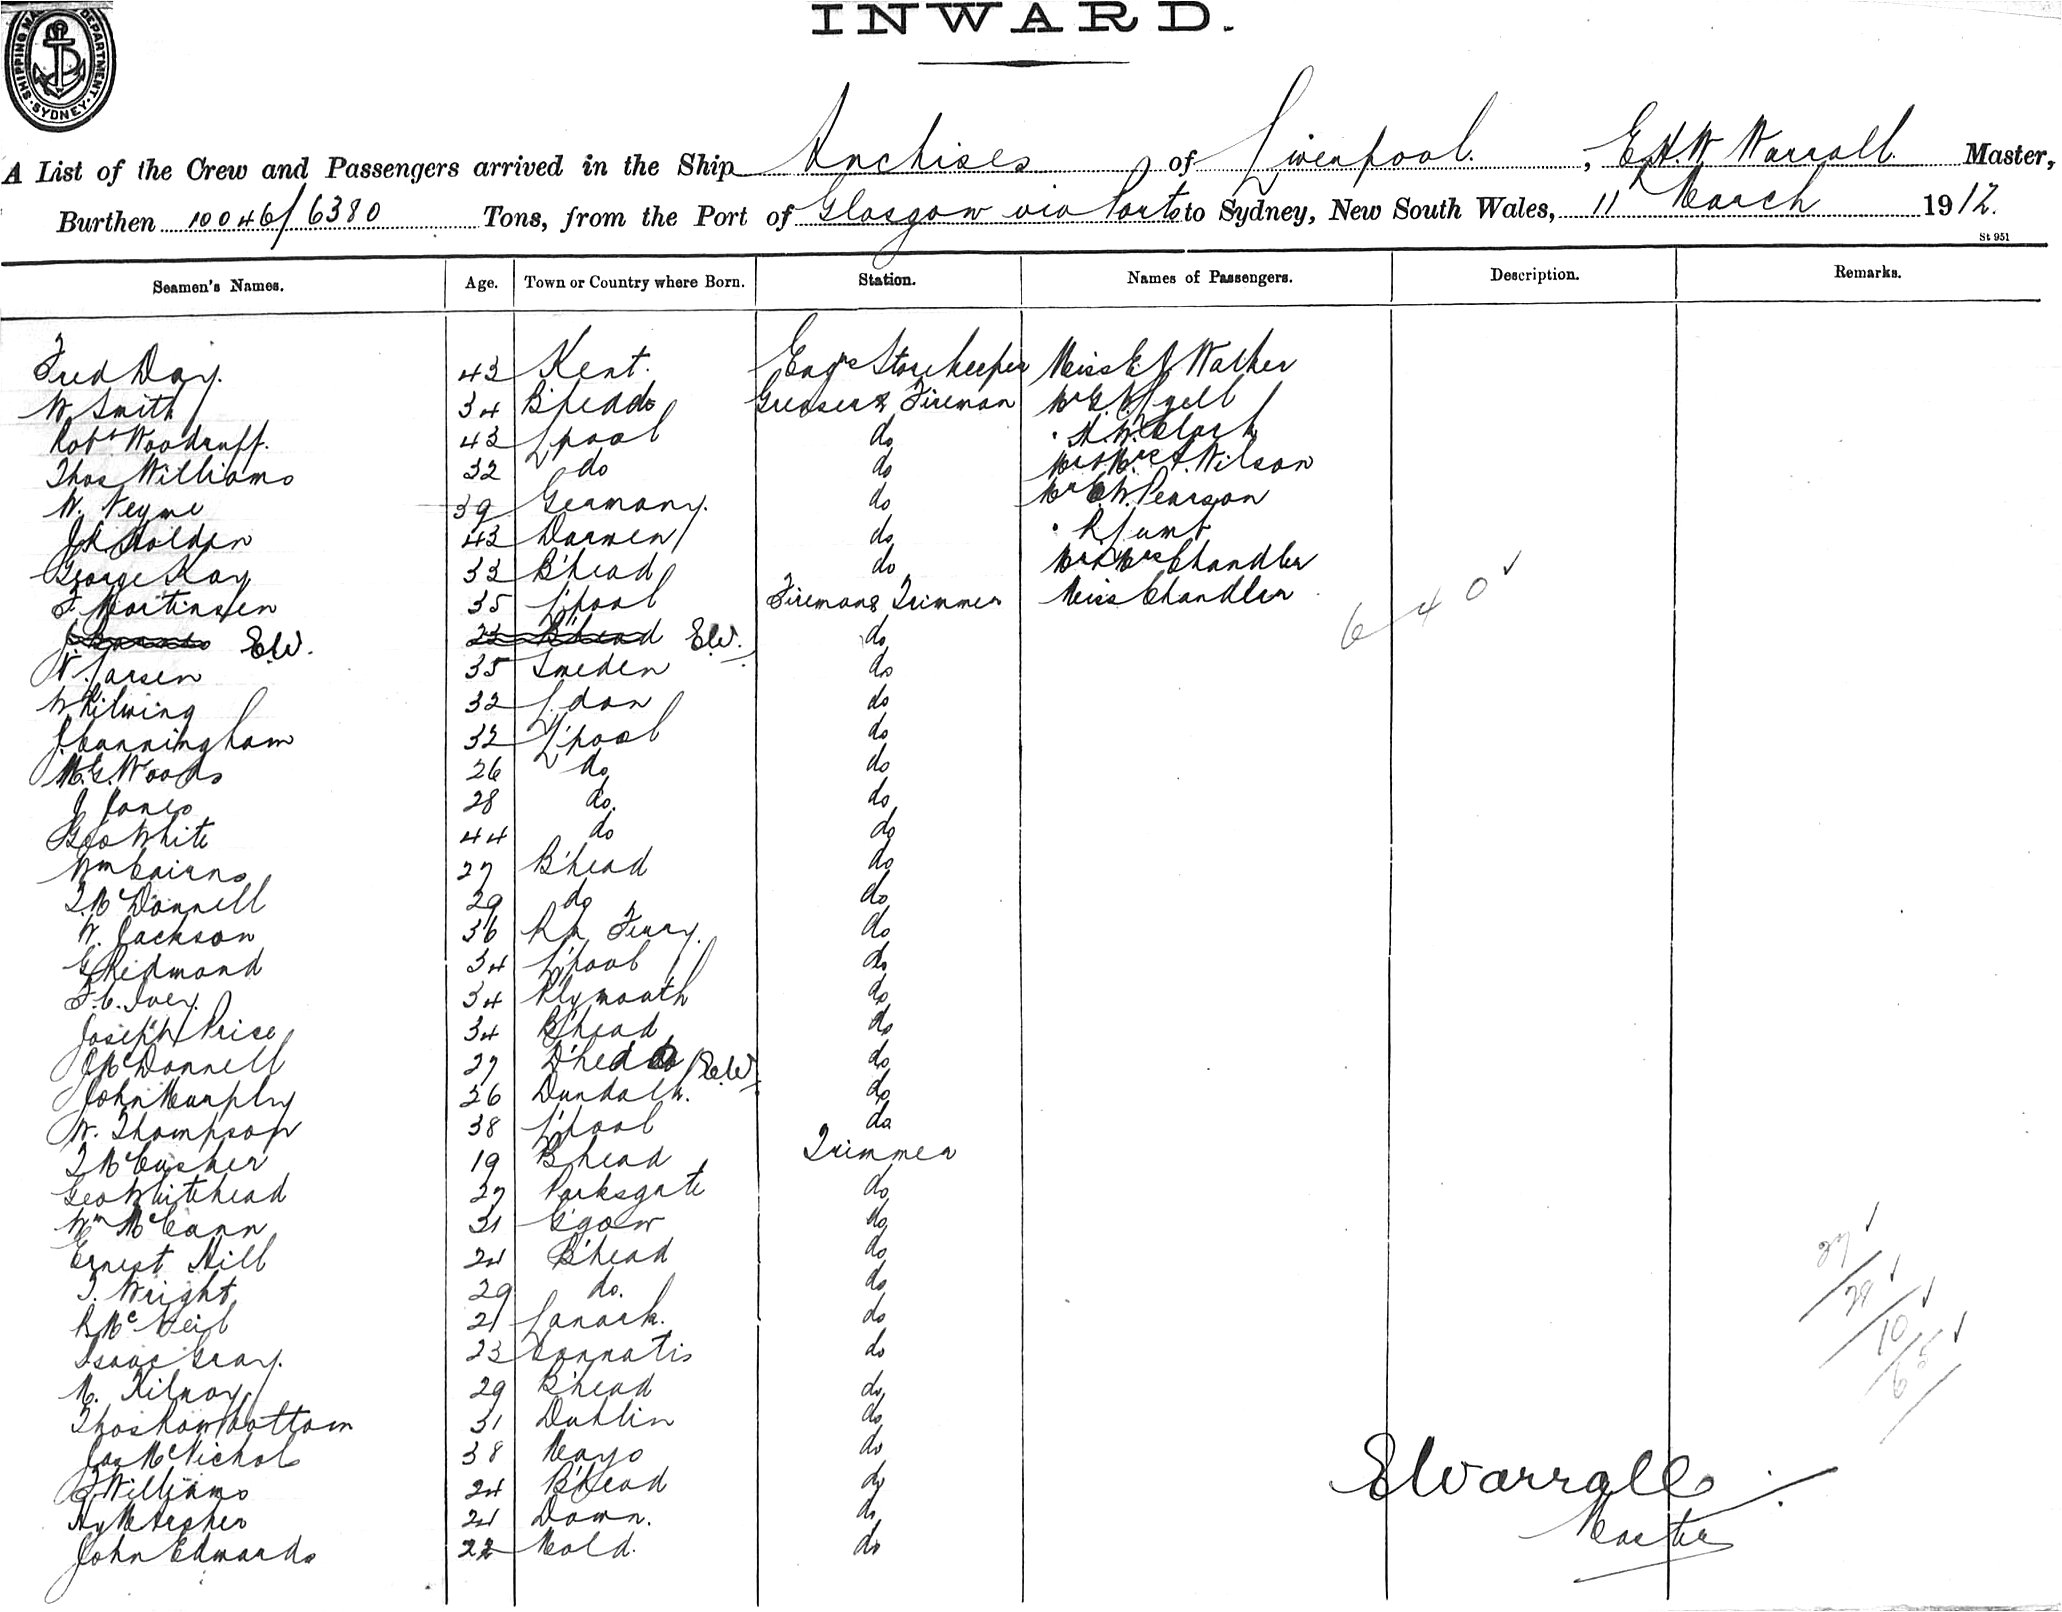 INWARD.
SHIPPING MASTER'S DEPARTMENT. SYDNEY.
A List of the Crew and Passengers arrived in the Ship Anchises of Liverpool. , E H W Warrall Master,
Burthen 10046/6380 Tons, from the Port of Glasgow via Ports to Sydney, New South Wales, 11th March 1912.
St 951
Seamen's Names. Age. Town or Country where Born. Station. Names of Passengers. Description. Remarks.
Fred Day. 43 Kent. Engrs Storekeeper Miss Walker
W. Smith 34 B'head Greaser & Fireman Mr
Robt Woodruff. 43 L'pool do H. W. Clark
Thos Williams 32 do do Mr & Mrs A. Wilson
W. 39 Germany. do Mr Pearson
J Holden 43 Darwen do R
George Kay 33 B'head do Mr & Mrs Chandler
F. Martinsen 35 L'pool Fireman & Trimmer Miss Chandler
E.W. 23 B'head E.W. do 640
N. Larsen 35 Sweden do
W 32 L'don do
J. Cunningham 32 L'pool do
Woods 26 do do
J. Jones 28 do. do
Geo White 44 do do
Wm Cairns 27 B'head do
T. McDonnell 29 do do
W. Jackson 36 Rk Ferry. do
G Redmond 34 L'pool do
F. C. Ivey. 34 Plymouth do
Joseph Price 34 B'head do
J McDonnell 27 D'head E.W. do
John Murphy 26 Dundalk. do
W. Thompson 38 L'pool do
T. McCusker 19 B'head Trimmer
Geo Whitehead 27 Parksgate do
Wm McCann 31 G'gow do
Ernest Hill 24 B'head do
T. Wright 29 do. do
R. McNeil 21 Lanark. do
Isaac Gray. 23 do
M. Kilroy 29 B'head do
Thos Rowbottom 31 Dublin do
Jas McNichol 38 Mayo do
T Williams 24 B'head do
Hy 24 Down. do
John Edwards 22 Mold. do
27
29
10
65
E Warrall
Master